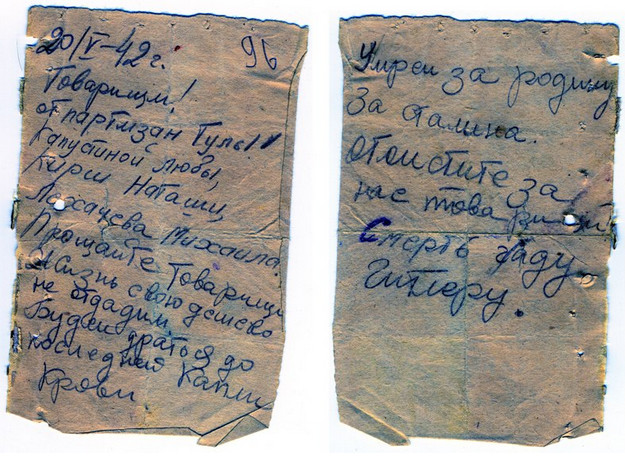 20/V-42 г. 96
Товарищи!
от партизан Тулы!
Капустиной Любы,
Кирш Наташи,
Лехачева Михаила.
Прощайте Товарищи
Жизнь свою дешево
не отдадим
Будем драться до
последней Капли
Крови
Умрем за родину
за Сталина.
Отомстите за
нас товарищи
Смерть гаду
Гитлеру.